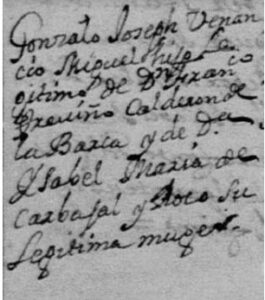 Gonzalo Joseph Venan
cio Miguel hijo le
gitimo de Dn Fran co
Treviño Calderon de
la Barca y de Da
Ysabel Maria de
Carbajal y Roco su
Legitima muger